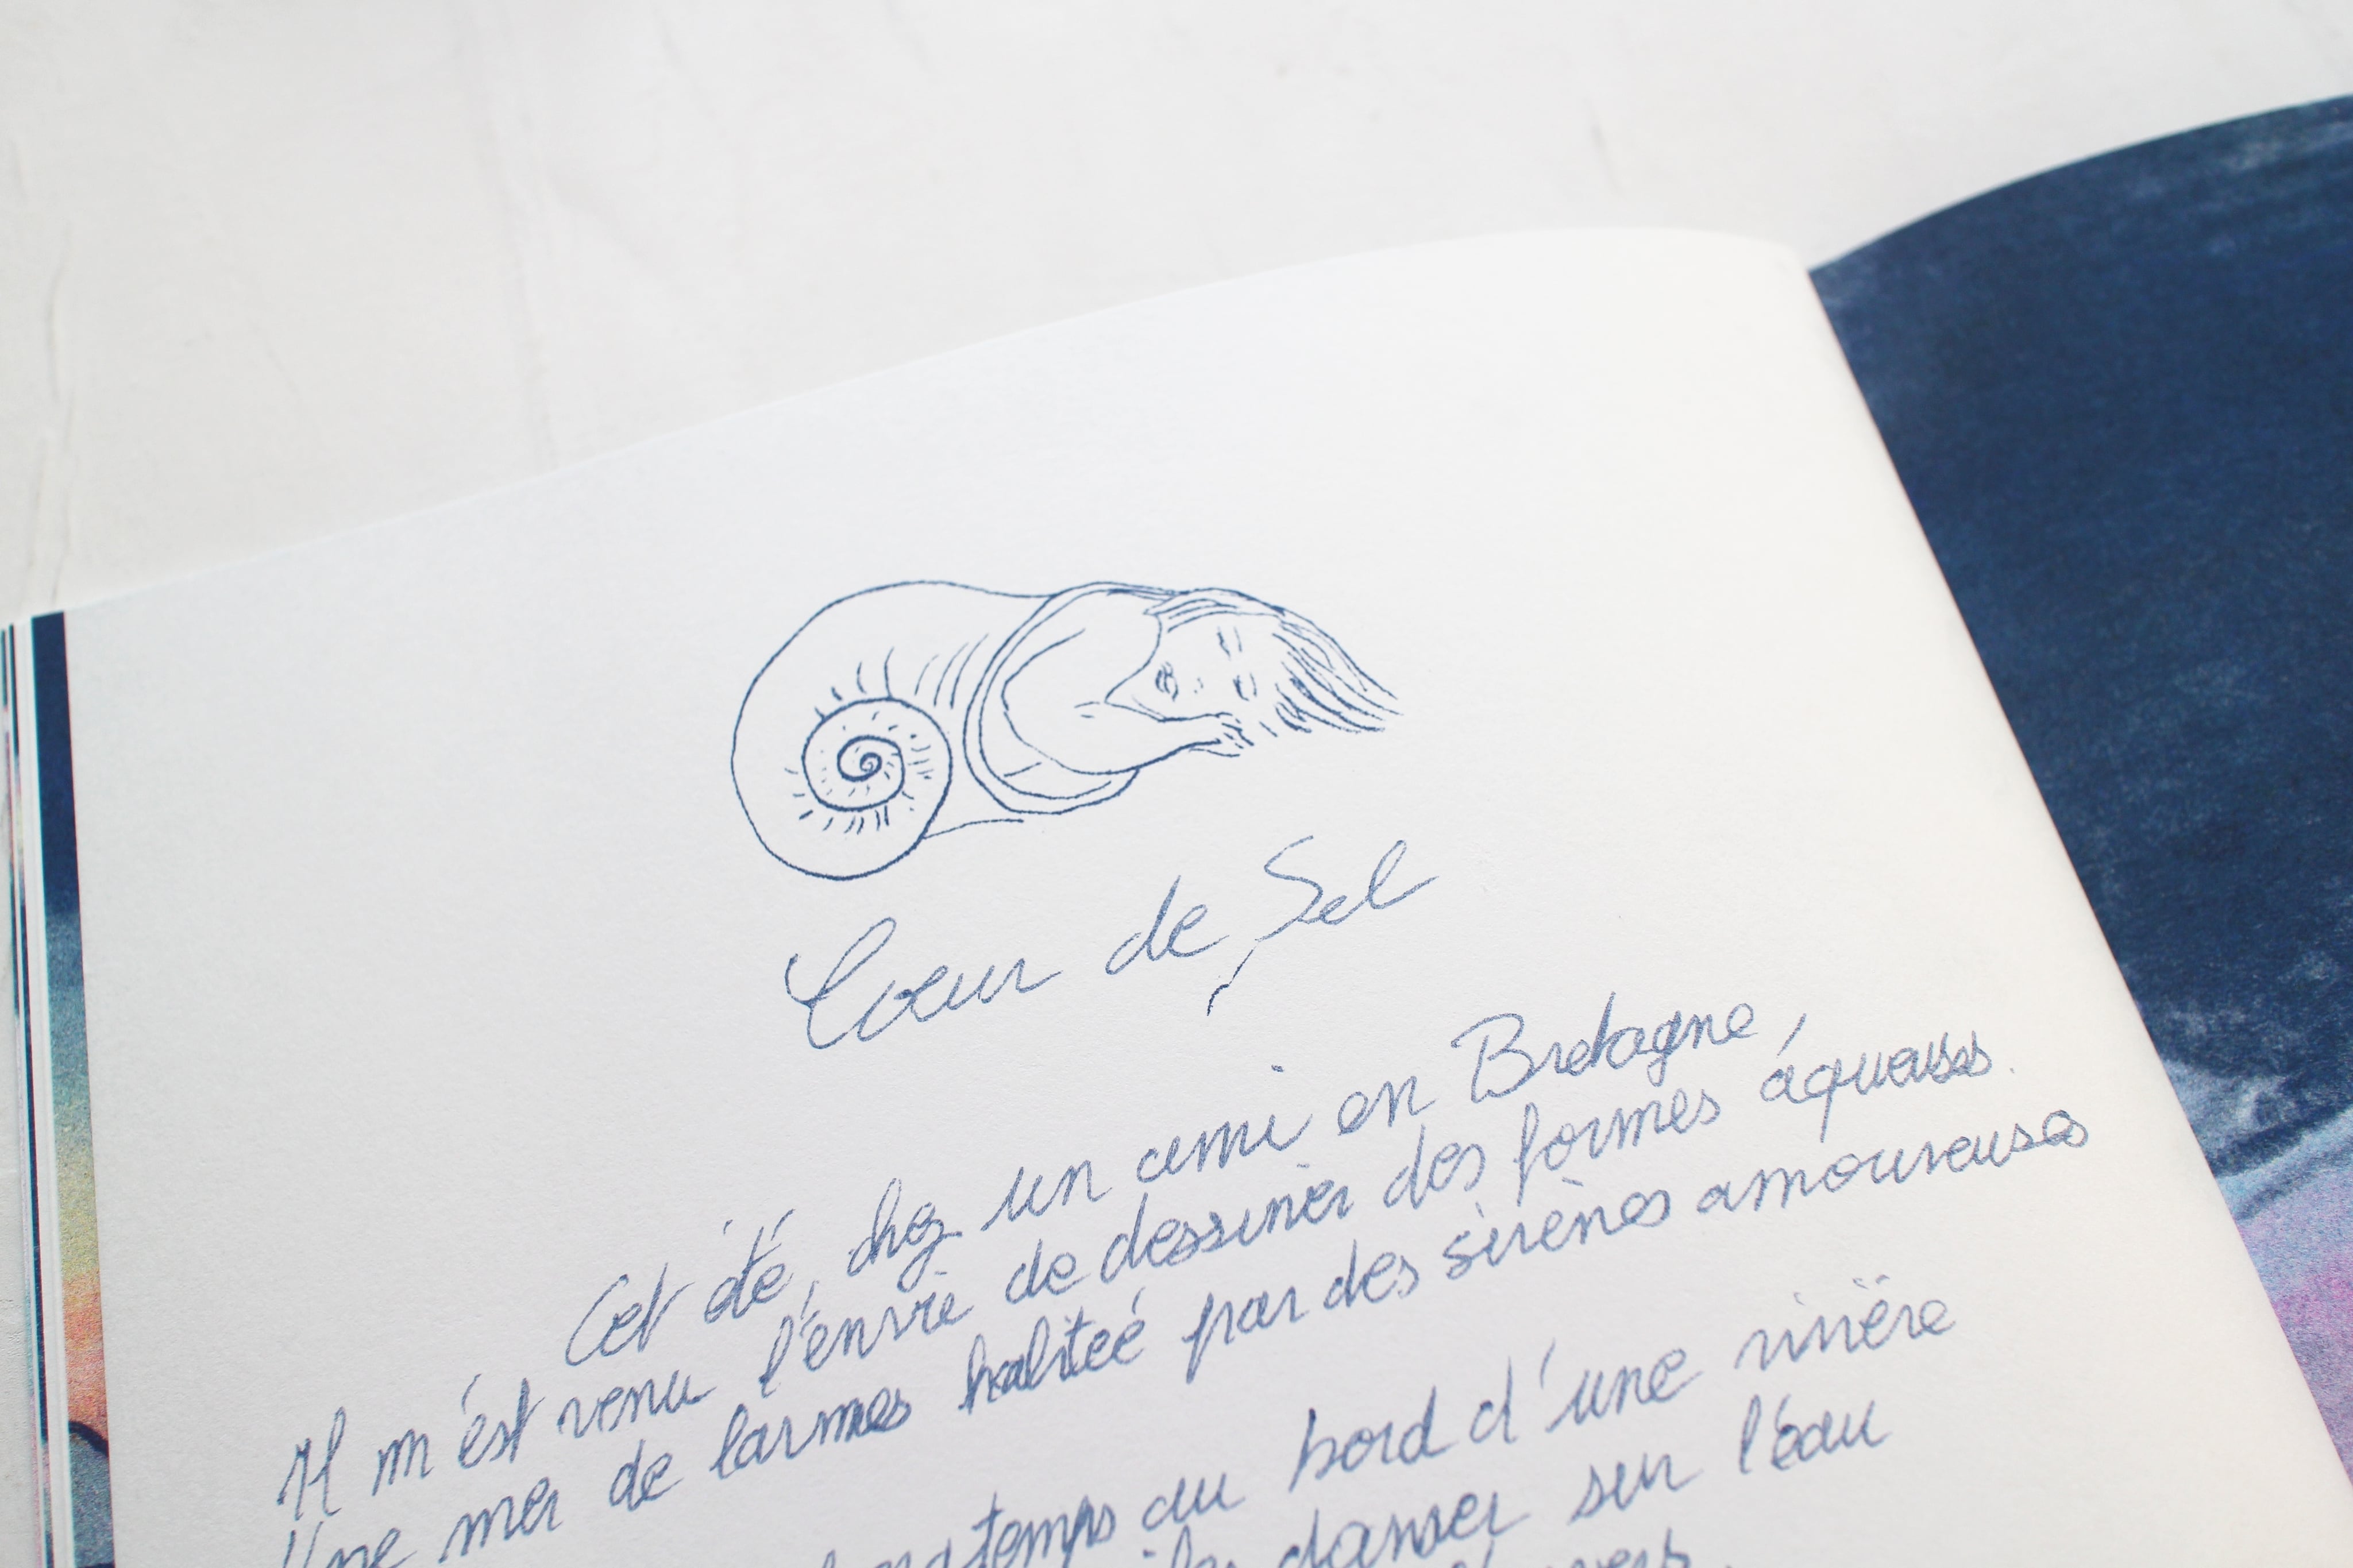 Cœur de Sel
Cet été, chez un ami en Bretagne,
Il m'est venu l'envie de dessiner des formes aqueuses.
Une mer de larmes habitée par des sirènes amoureuses
longtemps au bord d'une rivière
danser sur l'eau